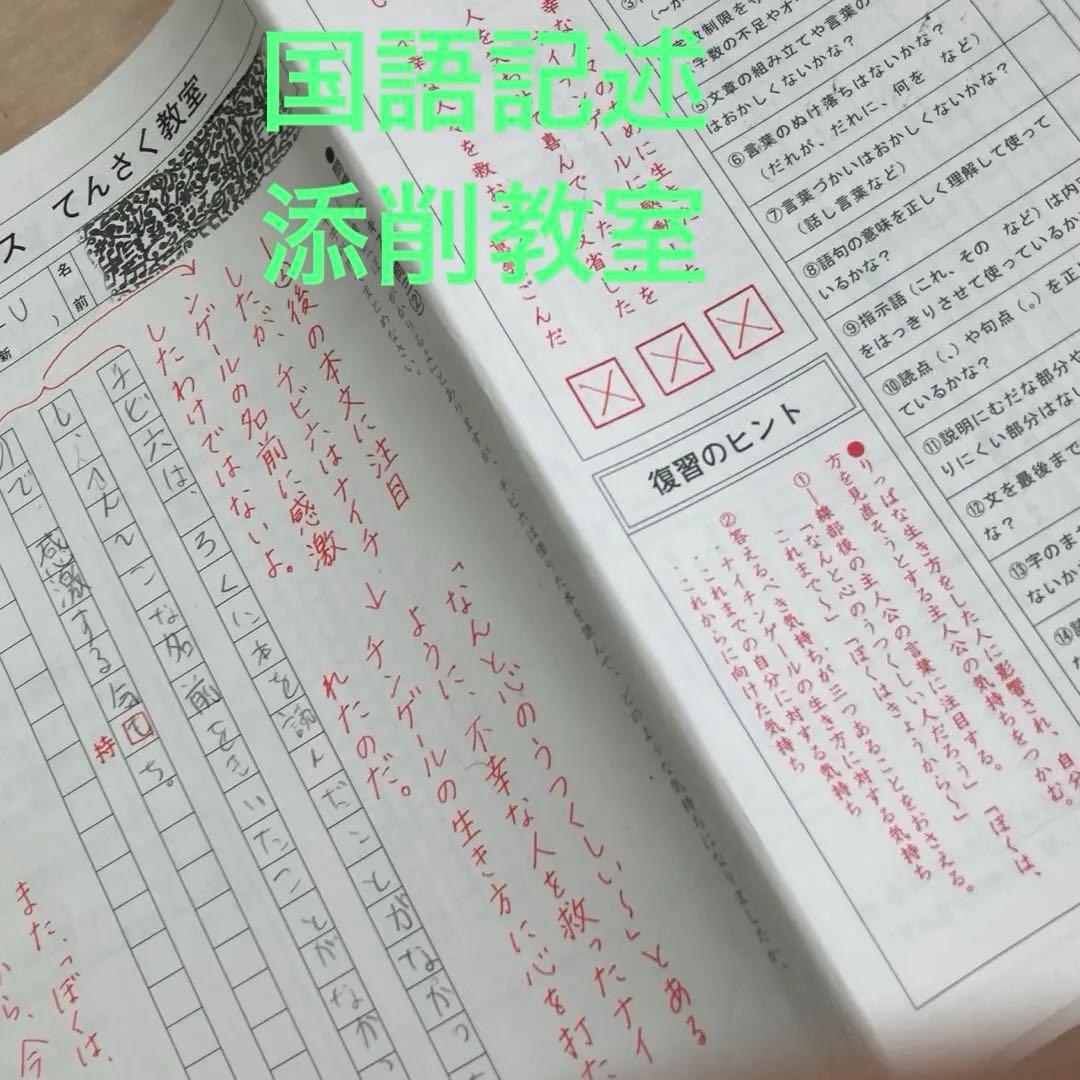 国語記述
添削教室
てんさく教室
ス
名前
新
③
(〜か
数制限を
字数の不足やオー
⑤文章の組み立てや言葉の
はおかしくないかな？
⑥言葉のぬけ落ちはないかな？
（だれが、だれに、何を など）
⑦言葉づかいはおかしくないかな？
（話し言葉など）
⑧語句の意味を正しく理解して使って
いるかな？
⑨指示語（これ、その など）は内
をはっきりさせて使っているか
⑩読点（、）や句点（。）を正
ているかな？
⑪説明にむだな部分や
りにくい部分はな
⑫文を最後まで
な？
⑬字のま
ないか
⑭
復習のヒント
●りっぱな生き方をした人に影響され、自分
方を見直そうとする主人公の気持ちをつかむ。
①―線部後の主人公の言葉に注目する。
「なんと心のうつくしい人だろう」「ぼくは、
これまで〜」「ぼくはきょうから〜」
②答えるべき気持ちが三つあることをおさえる。
・ナイチンゲールの生き方に対する気持ち
・これまでの自分に対する気持ち
・これからに向けた気持ち
チビ六は借りた本を読んで、どのような気持ちになりましたか。
まとめなさい。
後の本文に注目
したが、チビ六はナイチ
ンゲールの名前に感激
したわけではないよ。
「なんと心のうつくしい〜」とある
ように、不幸な人を救ったナイ
チンゲールの生き方に心を打た
れたのだ。
チビ六は、ろくに本を読んだことがなかっ
な名前をきいたことがなかっ
ので感激する気もち。
持
また、「ぼくは、
から、今